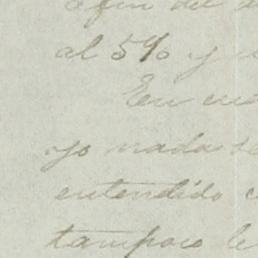 afin del
al 5% y
En cua
yo nada se
entendido c
tampoco le